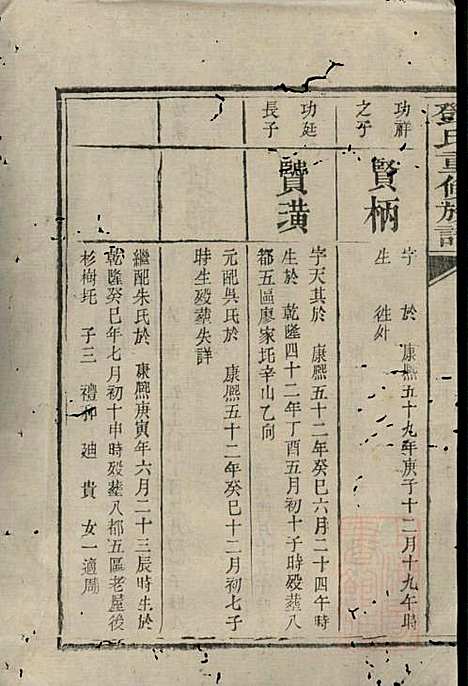 鄧氏重修族譜
功祥
之子
賢柄
字 於 康熙五十九年庚子十二月十九年時
生 徃外
功廷
長子
賢潢
字天其於 康熙五十二年癸巳六月二十四午時
生於 乾隆四十二年丁酉五月初十子時殁葬八
都五區廖家坵辛山乙向
元配吳氏於 康熙五十二年癸巳十二月初七子
時生殁葬失詳
繼配朱氏於 康熙庚寅年六月二十三辰時生於
乾隆癸巳年七月初十申時殁葬八都五區老屋後
杉樹坵 子三 禮和 廸 貴 女一適周